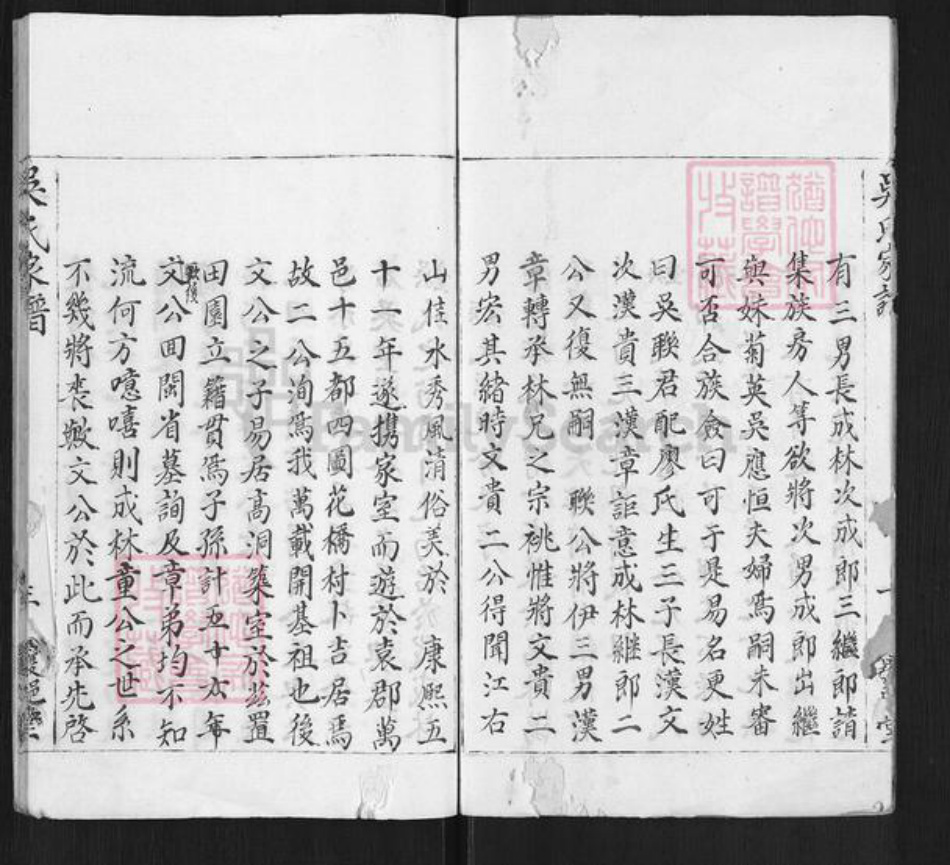 吳氏家譜
有三男長成林次成郎三繼郎請
集族房人等欲將次男成郎出繼
與妹菊英吳應恒夫婦爲嗣未審
可否合族僉曰可于是易名更姓
曰吳聯君配廖氏生三子長漢文
次漢貴三漢章詎意成林繼郎二
公又復無嗣 聯公將伊三男漢
章轉承林兄之宗祧惟將文貴二
男宏其緒時文貴二公得聞江右
山佳水秀風清俗美於 康熙五
十一年遂携家室而遊於袁郡萬
邑十五都四圖花橋村卜吉居焉
故二公洵爲我萬載開基祖也後
文公之子易居高洞築室於茲置
田園立籍貫焉子孫計五十六年
文公回閩省墓詢及章弟均不知
流何方噫嘻則成林童公之世系
不幾將喪歟文公於此而承先啓
吳氏家譜
FamilySearch